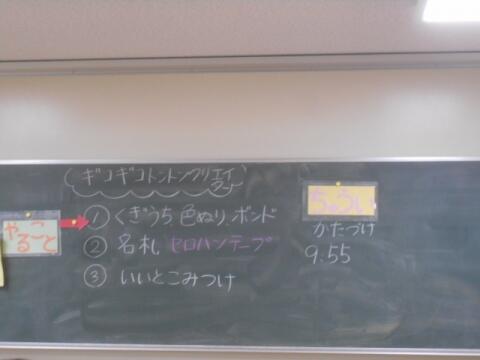 ギコギコトントンクリエイター
やることと
① くぎうち 色ぬり、ボンド
② 名札 セロハンテープ
③ いいとこみつけ
ちゅうい
かたづけ
9:55